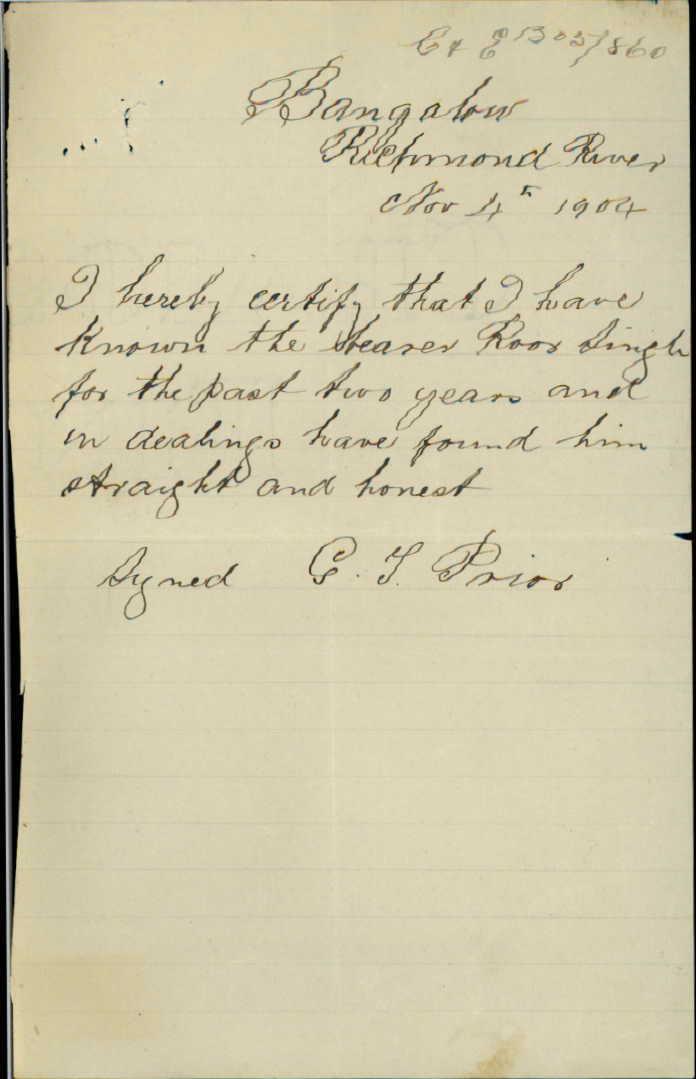 Ex E1303/860
Bangalow
Richmond River
Nov 4th 1904
I hereby certify that I have
known the bearer Roor Singh
for the past two years and
in dealings have found him
straight and honest
Signed G. T. Prior